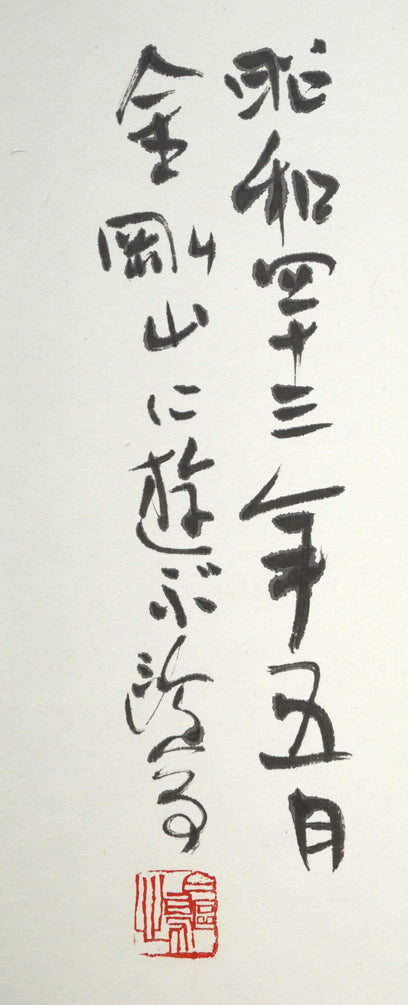 昭和四十三年五月
金剛山に遊ぶ